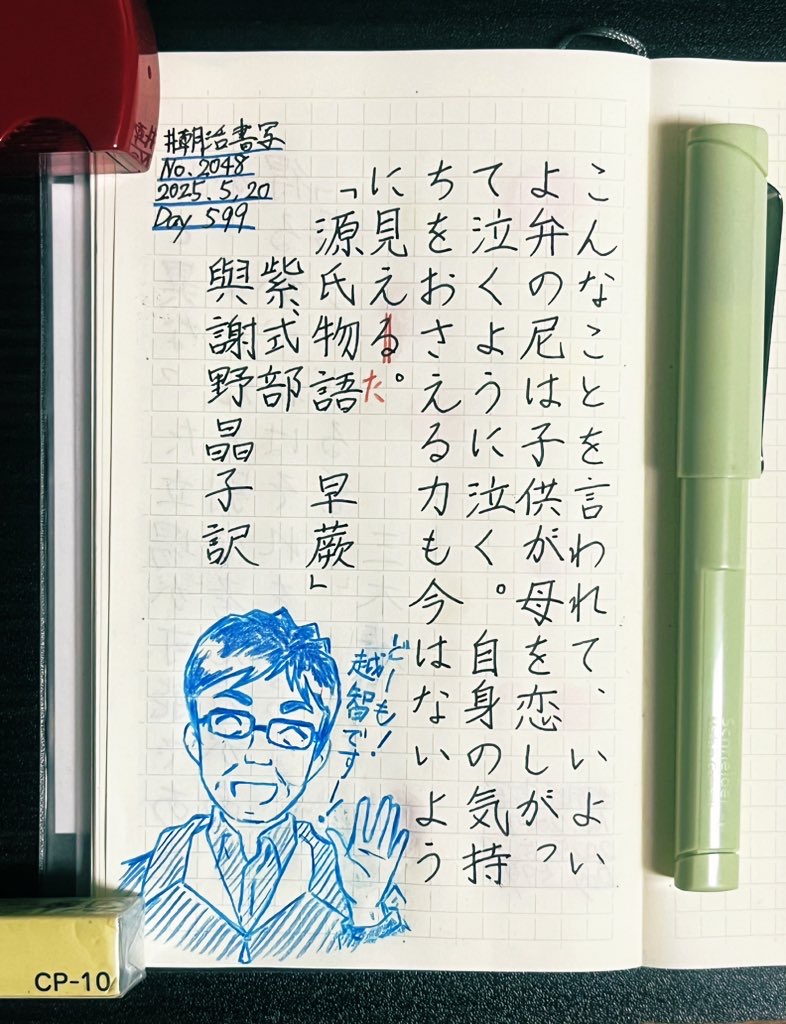 #朝活書写
No.2048
2025.5.20
Day 599
こんなことを言われて、いよい
よ弁の尼は子供が母を恋しがっ
て泣くように泣く。自身の気持
ちをおさえる力も今はないよう
に見えるた。
「源氏物語 早蕨」
紫式部
與謝野晶子訳
どーも!
越智です!
CP-10